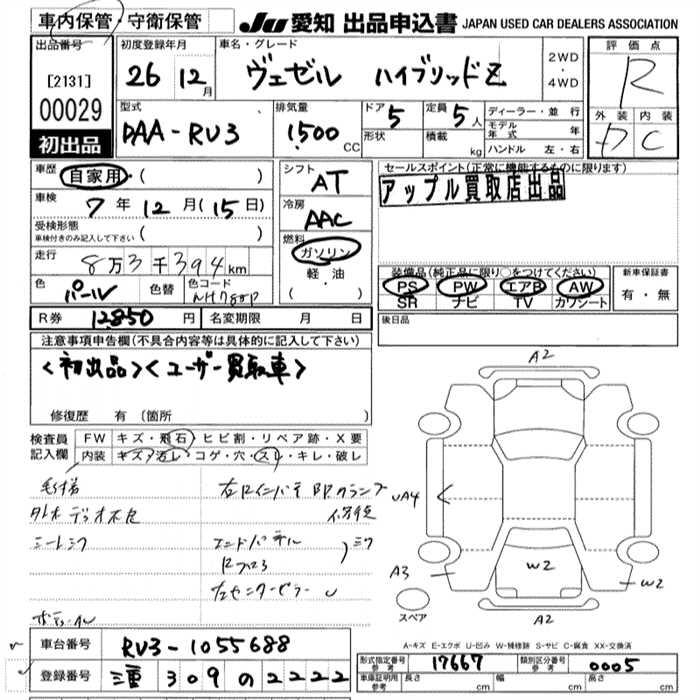 車内保管・守衛保管
JU 愛知 出品申込書 JAPAN USED CAR DEALERS ASSOCIATION
出品番号 初度登録年月 車名・グレード 2WD ・ 4WD 評価点
[2131] 26 12月 ヴェゼル ハイブリッドZ R
00029 型式 排気量 ドア 5 定員 5人 ディーラー・並行 外装 内装
初出品 DAA-RU3 1,500 CC 形状 積載 kg モデル年式 年 D C
ハンドル 左・右
車歴 自家用・( ) シフト AT セールスポイント(正常に機能するものに限ります)
車検 7年12月(15日) 冷房 AAC アップル買取店出品
受検形態 車検付きのみ記入して下さい ( )
走行 8万3千394km 燃料 ガソリン 軽油 ・( )
色 パール 色替 色コード NH788P
装備品(純正品に限り○をつけてください) 新車保証書
PS PW エアB AW 有・無
SR ナビ TV カワシート
R券 12,850円 名変期限 月 日 後日品
注意事項申告欄(不具合内容等は具体的に記入して下さい)
<初出品><ユーザー買取車>
修復歴 有 (箇所
検査員記入欄 FW キズ・飛石・ヒビ割・リペア跡・X要
内装 キズ・汚レ・コゲ・穴・スレ・キレ・破レ
A2
UA4
A3
W2
W2
A2
スペア
A-キズ E-エクボ U-凹み W-補修跡 S-サビ C-腐食 XX-交換済
車台番号 RU3-1055688
登録番号 三重 309 の 2222
形式指定番号 参考 17667 類別区分番号 参考 0005
車庫証明用 参考 長さ cm 幅 cm 高さ cm